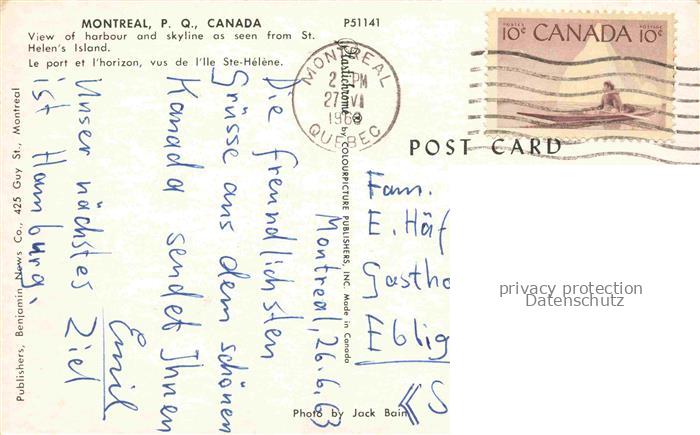 MONTREAL, P. Q., CANADA
View of harbour and skyline as seen from St.
Helen's Island.
Le port et l'horizon, vus de l'Ile Ste-Hélène.
P51141
Publishers, Benjamin News Co., 425 Guy St., Montreal
Plastichrome ® by COLOURPICTURE PUBLISHERS, INC. Made in Canada
POSTES POSTAGE
10¢ CANADA 10¢
MONTREAL
PM
27 VI
QUEBEC
POST CARD
Montreal, 26.6.63
Die freundlichsten
Grüsse aus dem schönen
Kanada sendet Ihnen
Emil
Unser nächstes Ziel
ist Hamburg.
Fam.
E. Häf
Gastho
Eblig
privacy protection
Datenschutz
Photo by Jack Bain